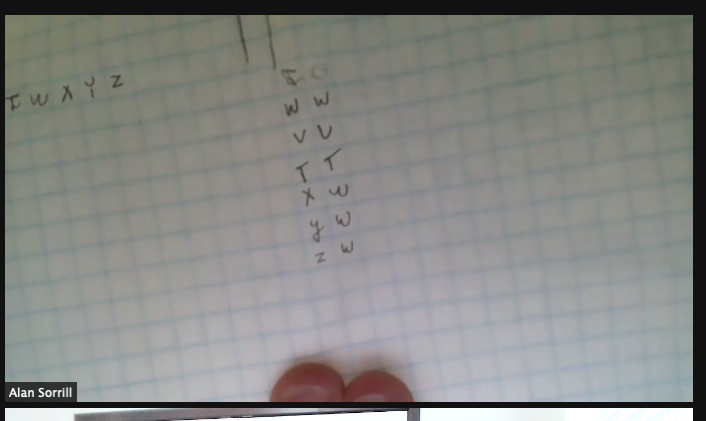 I W X Y Z
I O
W W
V U
T T
X W
y W
z W
Alan Sorrill